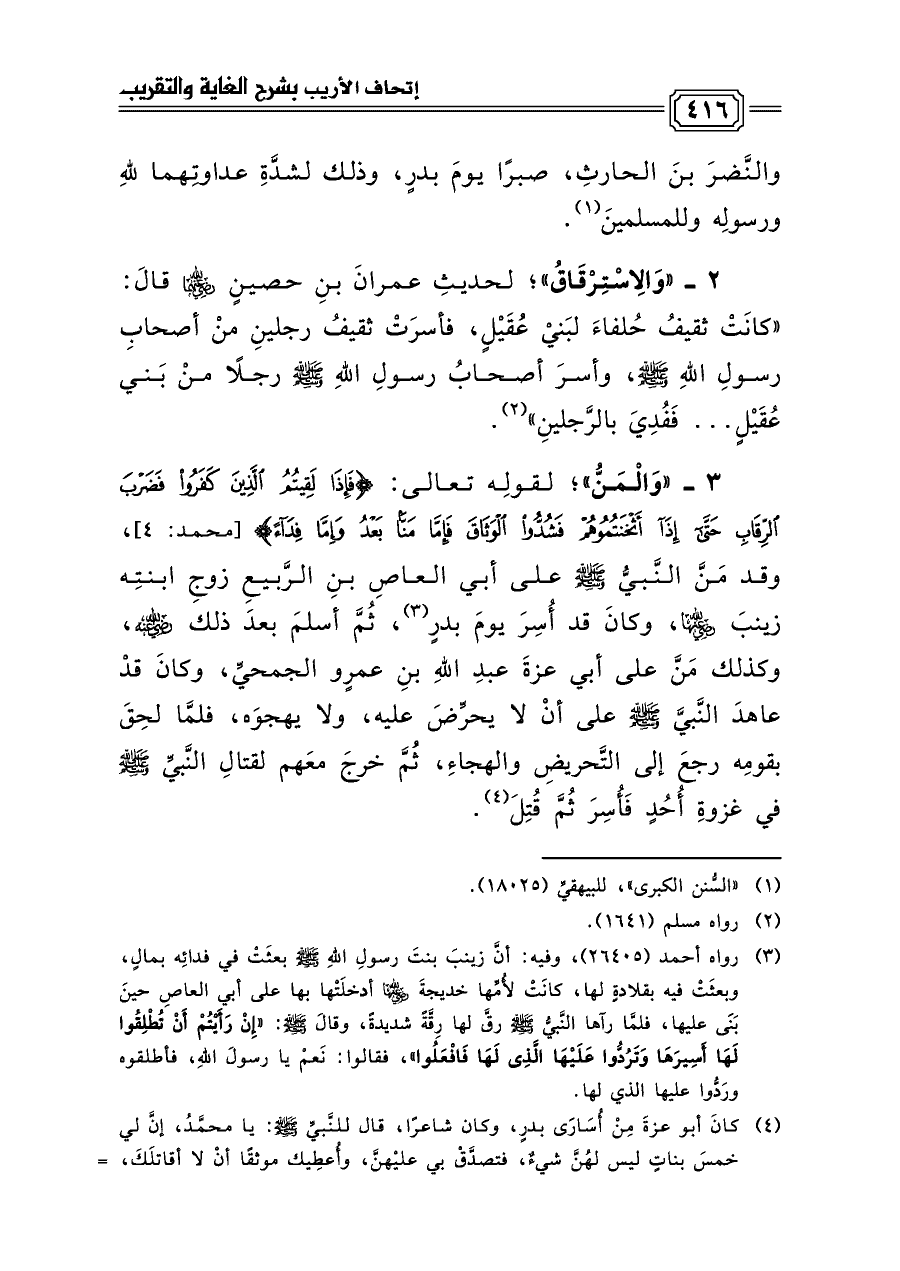 إتحاف الأريب بشرح الغاية والتقريب
٤١٦
والنَّضرَ بنَ الحارثِ، صبرًا يومَ بدرٍ، وذلك لشدَّةِ عداوتِهما للهِ
ورسولِه وللمسلمينَ(١).
٢ ـ «وَالِاسْتِرْقَاقُ»؛ لحديثِ عمرانَ بنِ حصينٍ رضي الله عنه قالَ:
«كانَتْ ثقيفُ حُلفاءَ لبَنيْ عُقَيْلٍ، فأسرَتْ ثقيفُ رجلينِ منْ أصحابِ
رسولِ اللهِ ﷺ، وأسرَ أصحابُ رسولِ اللهِ ﷺ رجلًا منْ بَني
عُقَيْلٍ... فَفُدِيَ بالرَّجلينِ»(٢).
٣ ـ «وَالْمَنُّ»؛ لقولِه تعالى: ﴿فَإِذَا لَقِيتُمُ ٱلَّذِينَ كَفَرُواْ فَضَرۡبَ
ٱلرِّقَابِ حَتَّىٰٓ إِذَآ أَثۡخَنتُمُوهُمۡ فَشُدُّواْ ٱلۡوَثَاقَ فَإِمَّا مَنَّۢا بَعۡدُ وَإِمَّا فِدَآءً﴾ [محمد: ٤]،
وقد مَنَّ النَّبيُّ ﷺ على أبي العاصِ بنِ الرَّبيعِ زوجِ ابنتِه
زينبَ رضي الله عنها، وكانَ قد أُسِرَ يومَ بدرٍ(٣)، ثُمَّ أسلمَ بعدَ ذلك رضي الله عنه،
وكذلك مَنَّ على أبي عزةَ عبدِ اللهِ بنِ عمرٍو الجمحيِّ، وكانَ قدْ
عاهدَ النَّبيَّ ﷺ على أنْ لا يحرِّضَ عليه، ولا يهجوَه، فلمَّا لحِقَ
بقومِه رجعَ إلى التَّحريضِ والهجاءِ، ثُمَّ خرجَ معَهم لقتالِ النَّبيِّ ﷺ
في غزوةِ أُحُدٍ فَأُسِرَ ثُمَّ قُتِلَ(٤).
(١) «السُّنن الكبرى»، للبيهقيِّ (١٨٠٢٥).
(٢) رواه مسلم (١٦٤١).
(٣) رواه أحمد (٢٦٤٠٥)، وفيه: أنَّ زينبَ بنتَ رسولِ اللهِ ﷺ بعثَتْ في فدائِه بمالٍ،
وبعثَتْ فيه بقلادةٍ لها، كانَتْ لأُمِّها خديجةَ رضي الله عنها أدخلَتْها بها على أبي العاصِ حينَ
بَنَى عليها، فلمَّا رآها النَّبيُّ ﷺ رقَّ لها رِقَّةً شديدةً، وقالَ ﷺ: «إِنْ رَأَيْتُمْ أَنْ تُطْلِقُوا
لَهَا أَسِيرَهَا وَتَرُدُّوا عَلَيْهَا الَّذِى لَهَا فَافْعَلُوا»، فقالوا: نَعمْ يا رسولَ اللهِ، فأطلقوه
ورَدُّوا عليها الذي لها.
(٤) كانَ أبو عزةَ مِنْ أُسَارَى بدرٍ، وكان شاعرًا، قال للنَّبيِّ ﷺ: يا محمَّدُ، إنَّ لي
خمسَ بناتٍ ليس لهُنَّ شيءٌ، فتصدَّقْ بي عليْهنَّ، وأُعطِيك موثقًا أنْ لا أقاتلَكَ، =